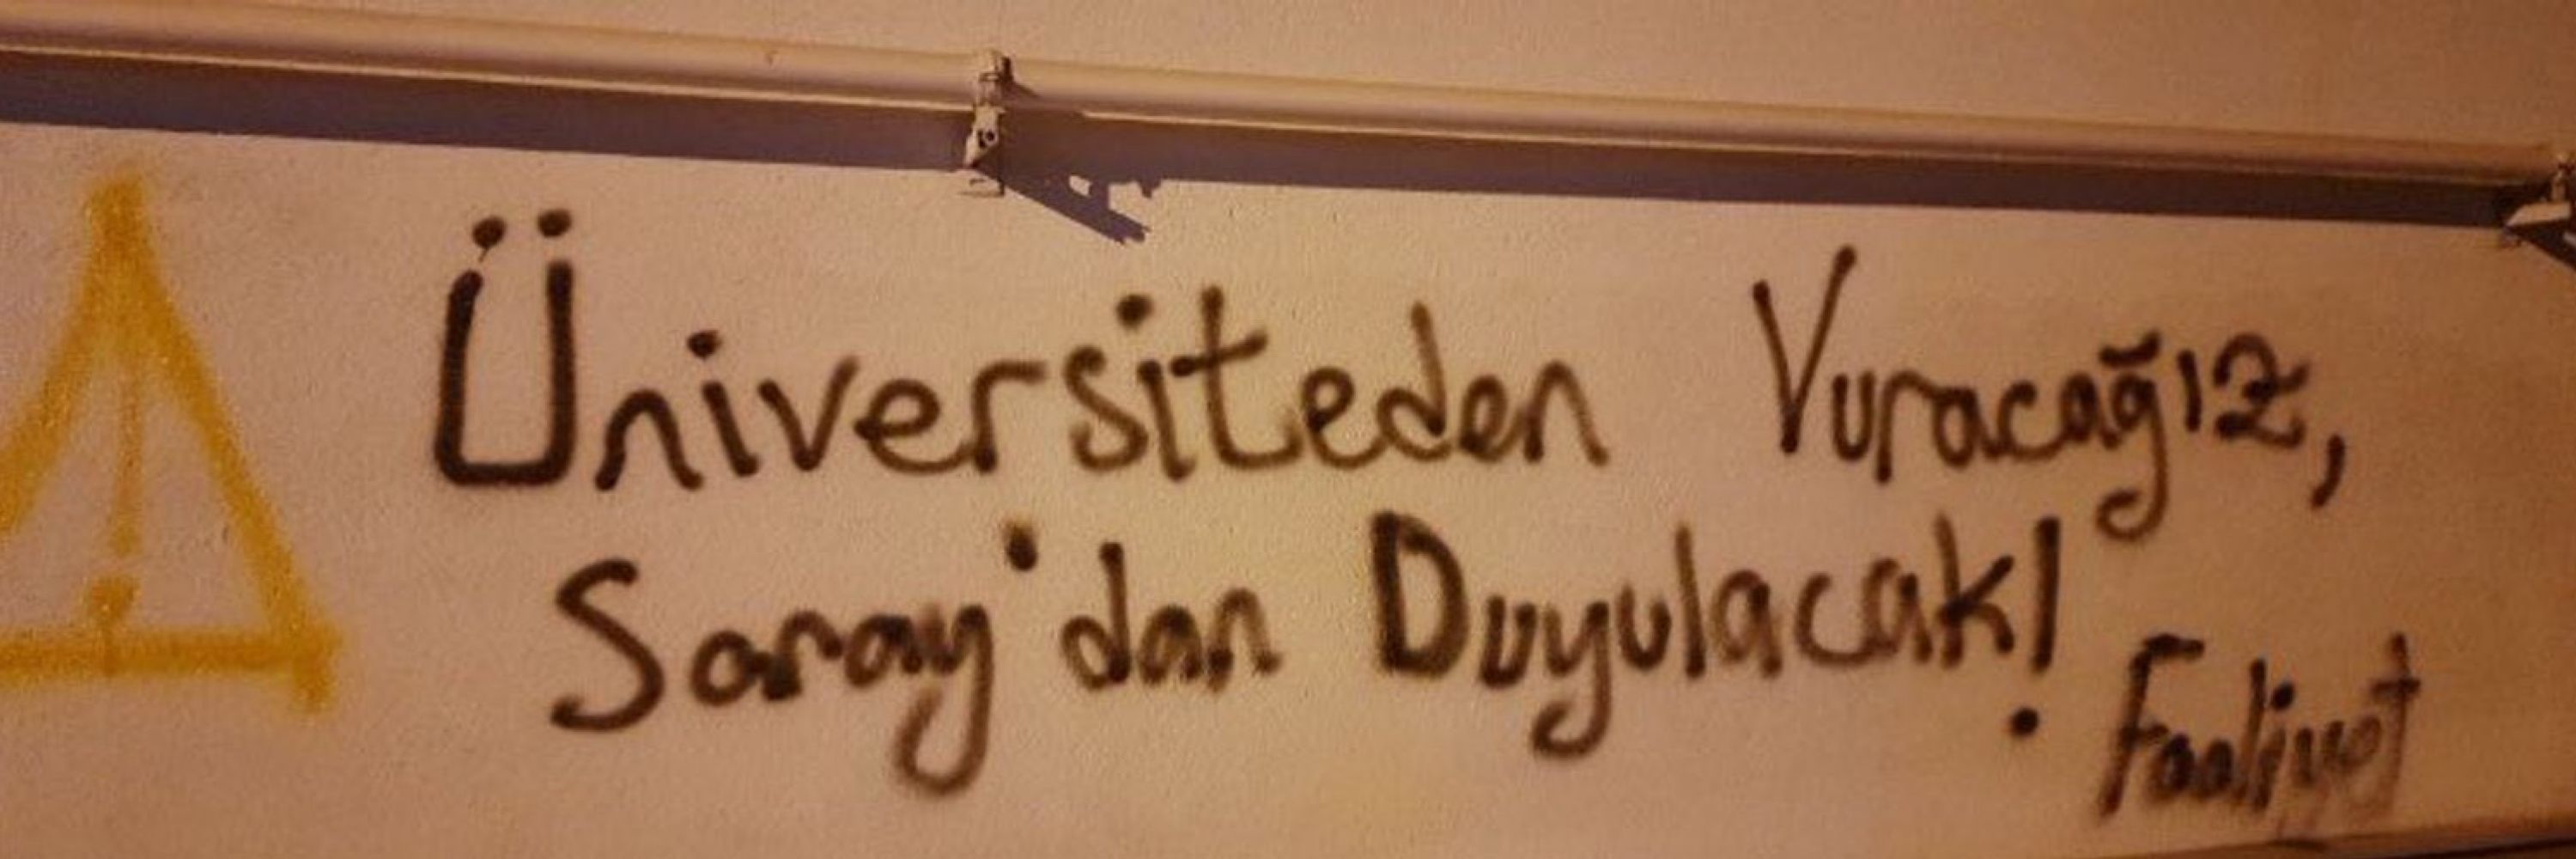 Üniversiteden Vuracağız,
Saray'dan Duyulacak!
Faaliyet